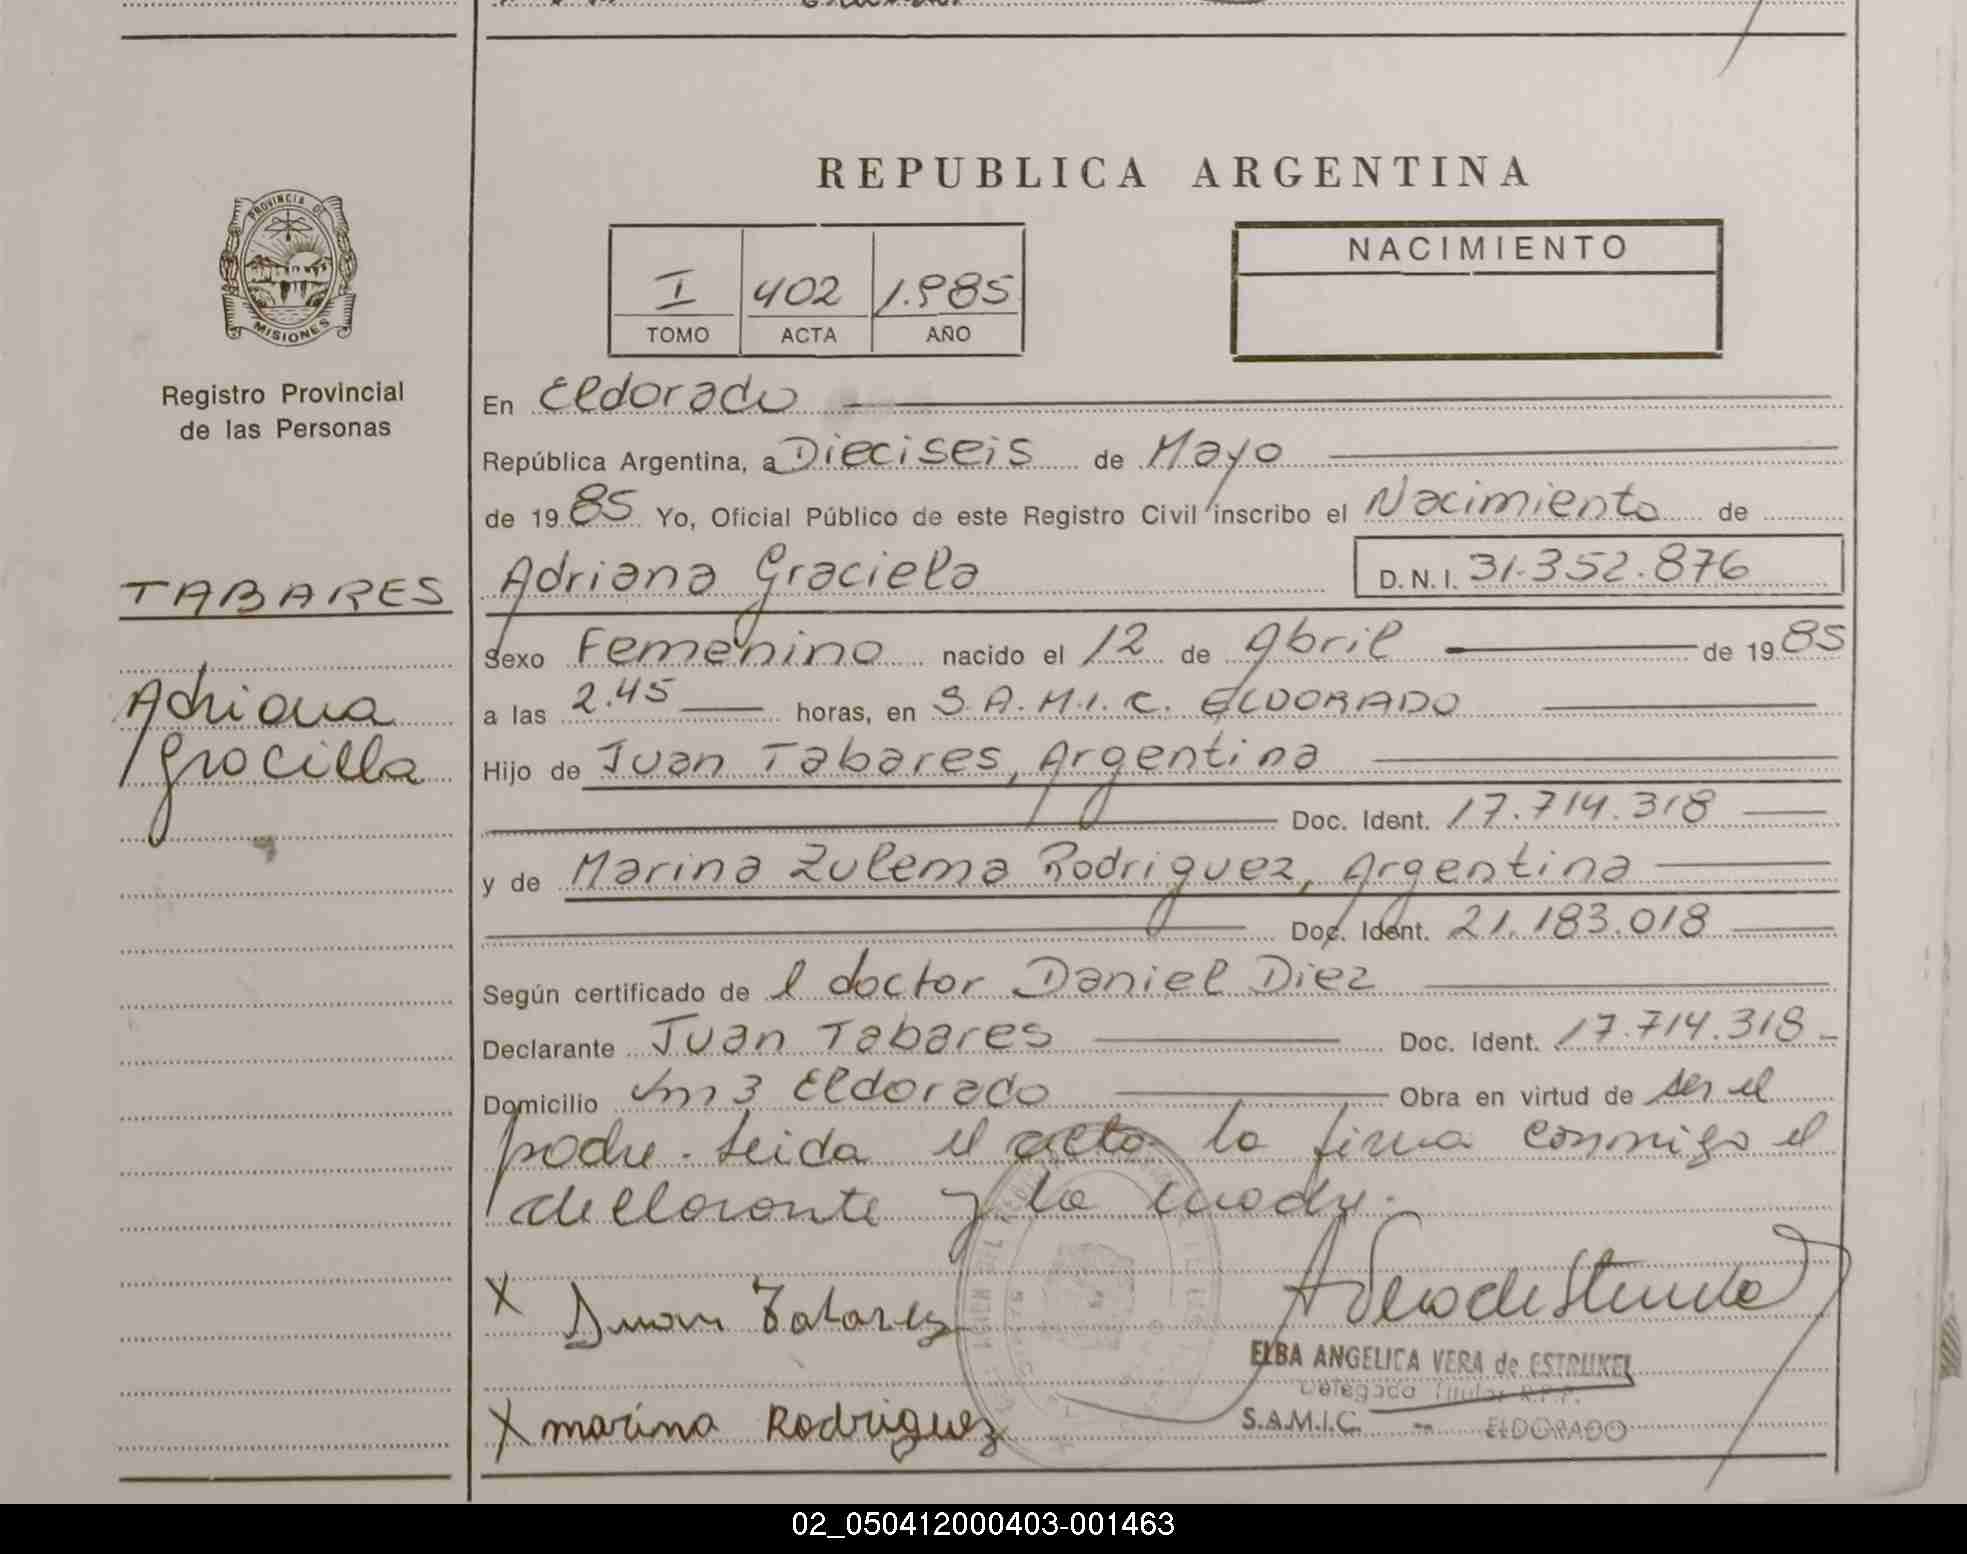 REPUBLICA ARGENTINA
PROVINCIA DE
MISIONES
Registro Provincial
de las Personas
I 402 1.985
TOMO ACTA AÑO
NACIMIENTO
En Eldorado
República Argentina, a Dieciseis de Mayo
de 1985 Yo, Oficial Público de este Registro Civil inscribo el Nacimiento de
TABARES
Adriana Graciela D.N.I. 31.352.876
Adriana
Graciella
Sexo Femenino nacido el 12 de Abril de 1985
a las 2.45 horas, en S.A.M.I.C. ELDORADO
Hijo de Juan Tabares, Argentina
Doc. Ident. 17.714.318
y de Marina Zulema Rodriguez, Argentina
Doc. Ident. 21.183.018
Según certificado de l doctor Daniel Diez
Declarante Juan Tabares Doc. Ident. 17.714.318
Domicilio km 3 Eldorado Obra en virtud de ser el
padre. Leida el acta la firma conmigo el
declarante y la madre.
X Juan Tabares
ELBA ANGELICA VERA de ESTRUKEL
Delegada Titular R.P.P.
S.A.M.I.C. - ELDORADO
X marina Rodriguez
02_050412000403-001463